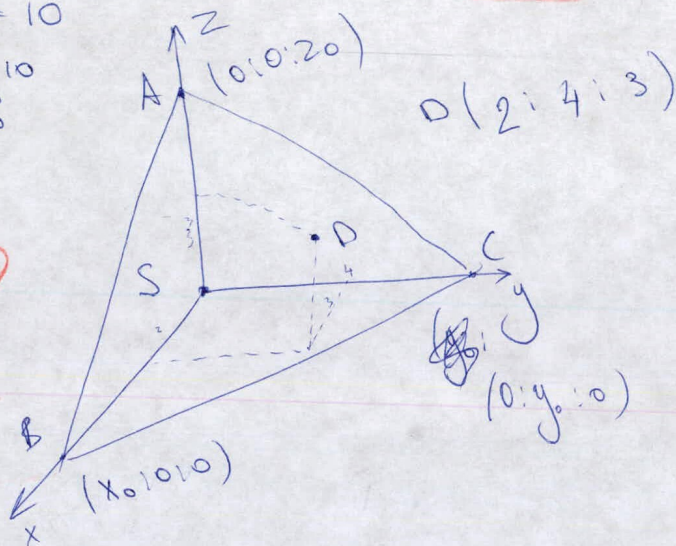 = 10
10
z
A (0;0;20)
D(2;4;3)
D
3
4
3
S
C
y
2
(0;y₀;0)
B
(x₀;0;0)
x